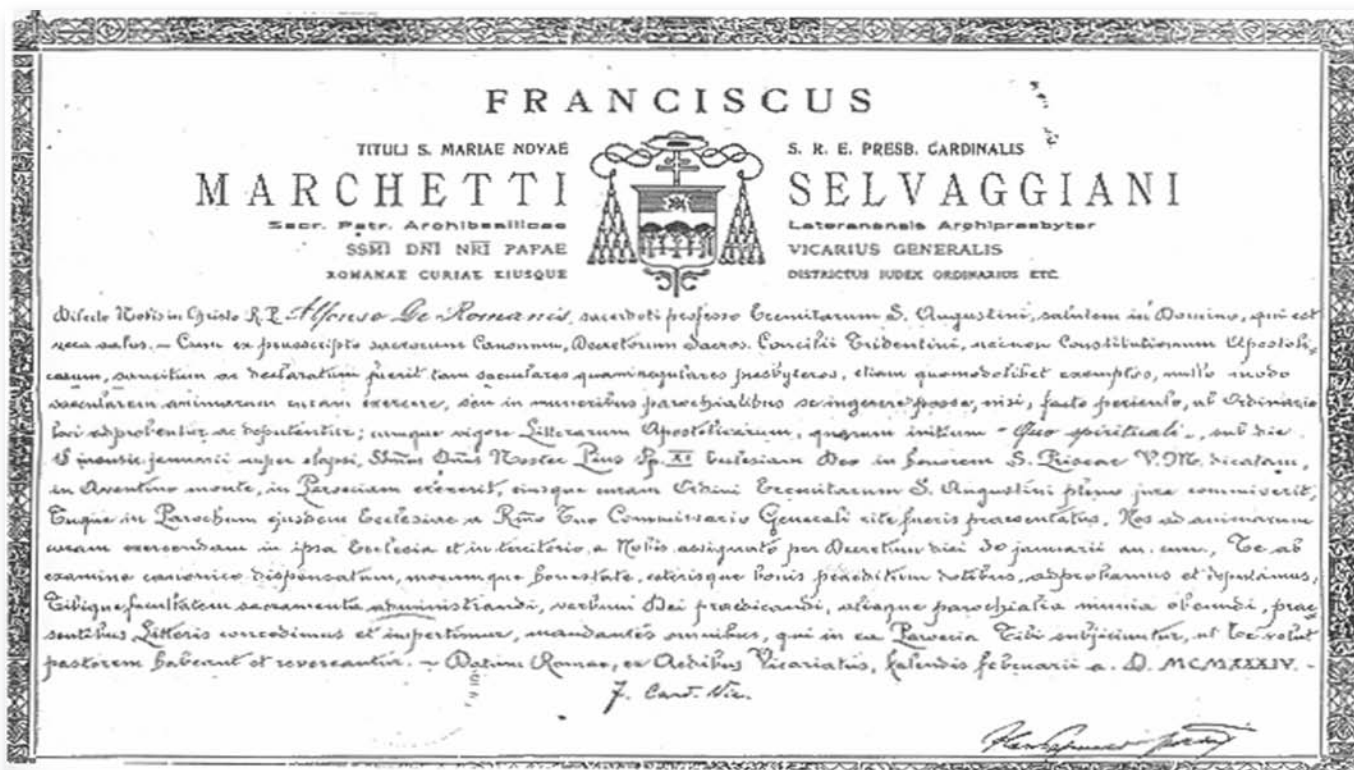 FRANCISCUS
TITULI S. MARIAE NOVAE
S. R. E. PRESB. CARDINALIS
MARCHETTI SELVAGGIANI
Sacr. Patr. Archibasilicae
Lateranensis Archipresbyter
SSM̅I̅ DN̅I̅ NR̅I̅ PAPAE
VICARIUS GENERALIS
ROMANAE CURIAE EIUSQUE
DISTRICTUS IUDEX ORDINARIUS ETC.
Dilecto Nobis in Christo R. P. Alfonso De Romanis, sacerdoti professo Eremitarum S. Augustini, salutem in Domino, qui est
vera salus. — Cum ex praescripto sacrorum Canonum, Decretorum Sacros. Concilii Tridentini, necnon Constitutionum Apostoli-
carum, sancitum ac declaratum fuerit tam saeculares quam regulares presbyteros, etiam quomodolibet exemptos, nullo modo
saecularem animarum curam exercere, seu in muneribus parochialibus se ingerere posse, nisi, facto periculo, ab Ordinario
loci adprobentur ac deputentur; cumque vigore Litterarum Apostolicarum, quarum initium "Quo spirituali", sub die
mensis januarii nuper elapsi, Ssm̃us Dñus Noster Pius Pp. XI Ecclesiam Deo in honorem S. Priscae V. M. dicatam,
in Aventino monte, in Paroeciam erexerit, eiusque curam Ordini Eremitarum S. Augustini pleno jure commiserit,
Tuque in Parochum ejusdem Ecclesiae a Rm̃o Tuo Commissario Generali rite fueris praesentatus, Nos ad animarum
curam exercendam in ipsa Ecclesia et in territorio a Nobis assignato per Decretum diei 30 januarii an. curr., Te ab
examine canonico dispensatum, morumque honestate, ceterisque bonis praeditum dotibus, adprobamus et deputamus,
Tibique facultatem sacramenta administrandi, verbum Dei praedicandi, aliaque parochialia munia obeundi, prae-
sentibus Litteris concedimus et impertimur, mandantes omnibus, qui in ea Paroecia Tibi subjiciuntur, ut Te velut
pastorem habeant et revereantur. — Datum Romae, ex Aedibus Vicariatus, kalendis februarii a. D. MCMXXXIV. —
F. Card. Vic.